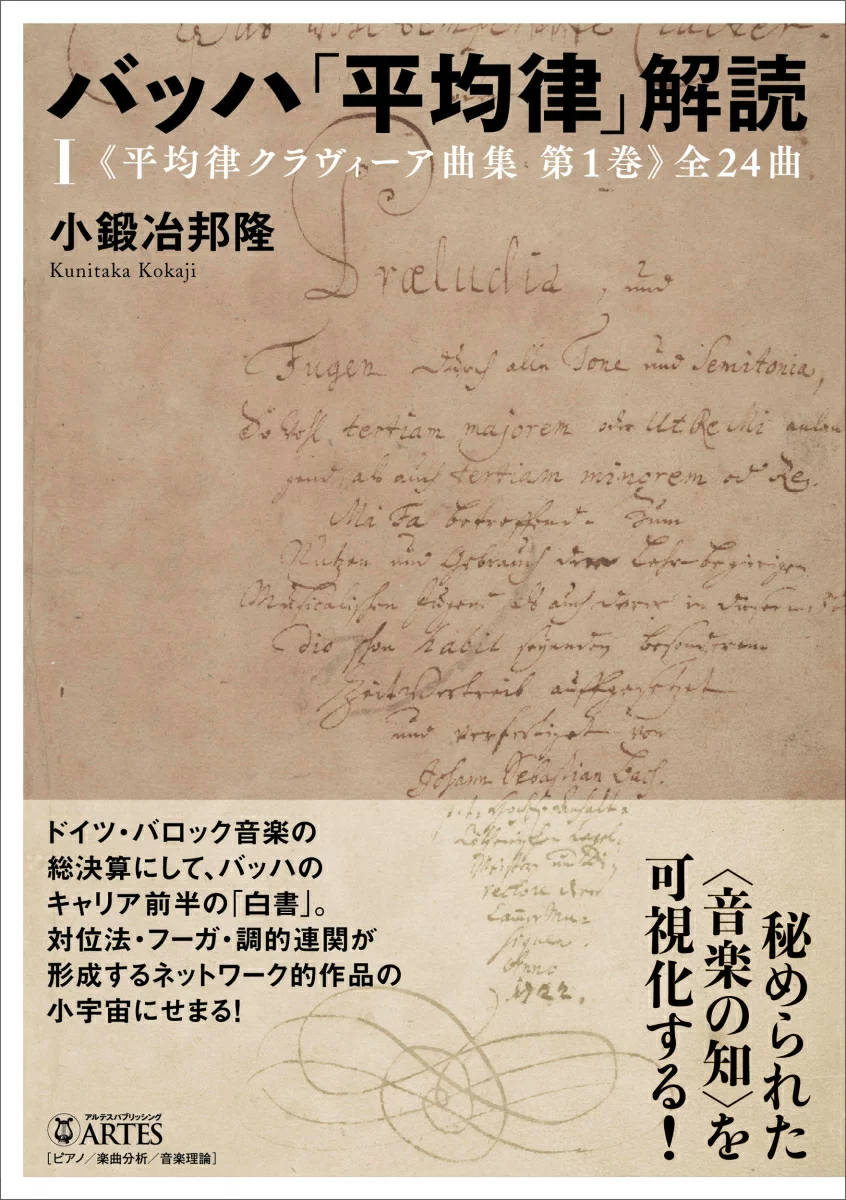 バッハ「平均律」解読
I 《平均律クラヴィーア曲集 第1巻》全24曲
小鍛冶邦隆
Kunitaka Kokaji
Præludia, und
Fugen durch alle Tone und Semitonia,
So wohl tertiam majorem oder Ut Re Mi anlan
gend, als auch tertiam minorem od Re
Mi Fa betreffend. Zum
Nutzen und Gebrauch der Lehr-begierigen
Musicalischen Jugend als auch derer in diesem
die schon habil seyenden besonderem
Zeitvertreib auffgesetzet
und verfertiget von
Johann Sebastian Bach.
Capel
Meistern und Di
rectore derer
Cammer Mu
siquen.
Anno
1722.
ドイツ・バロック音楽の
総決算にして、バッハの
キャリア前半の「白書」。
対位法・フーガ・調的連関が
形成するネットワーク的作品の
小宇宙にせまる!
秘められた
〈音楽の知〉を
可視化する!
アルテスパブリッシング
ARTES
[ピアノ/楽曲分析/音楽理論]